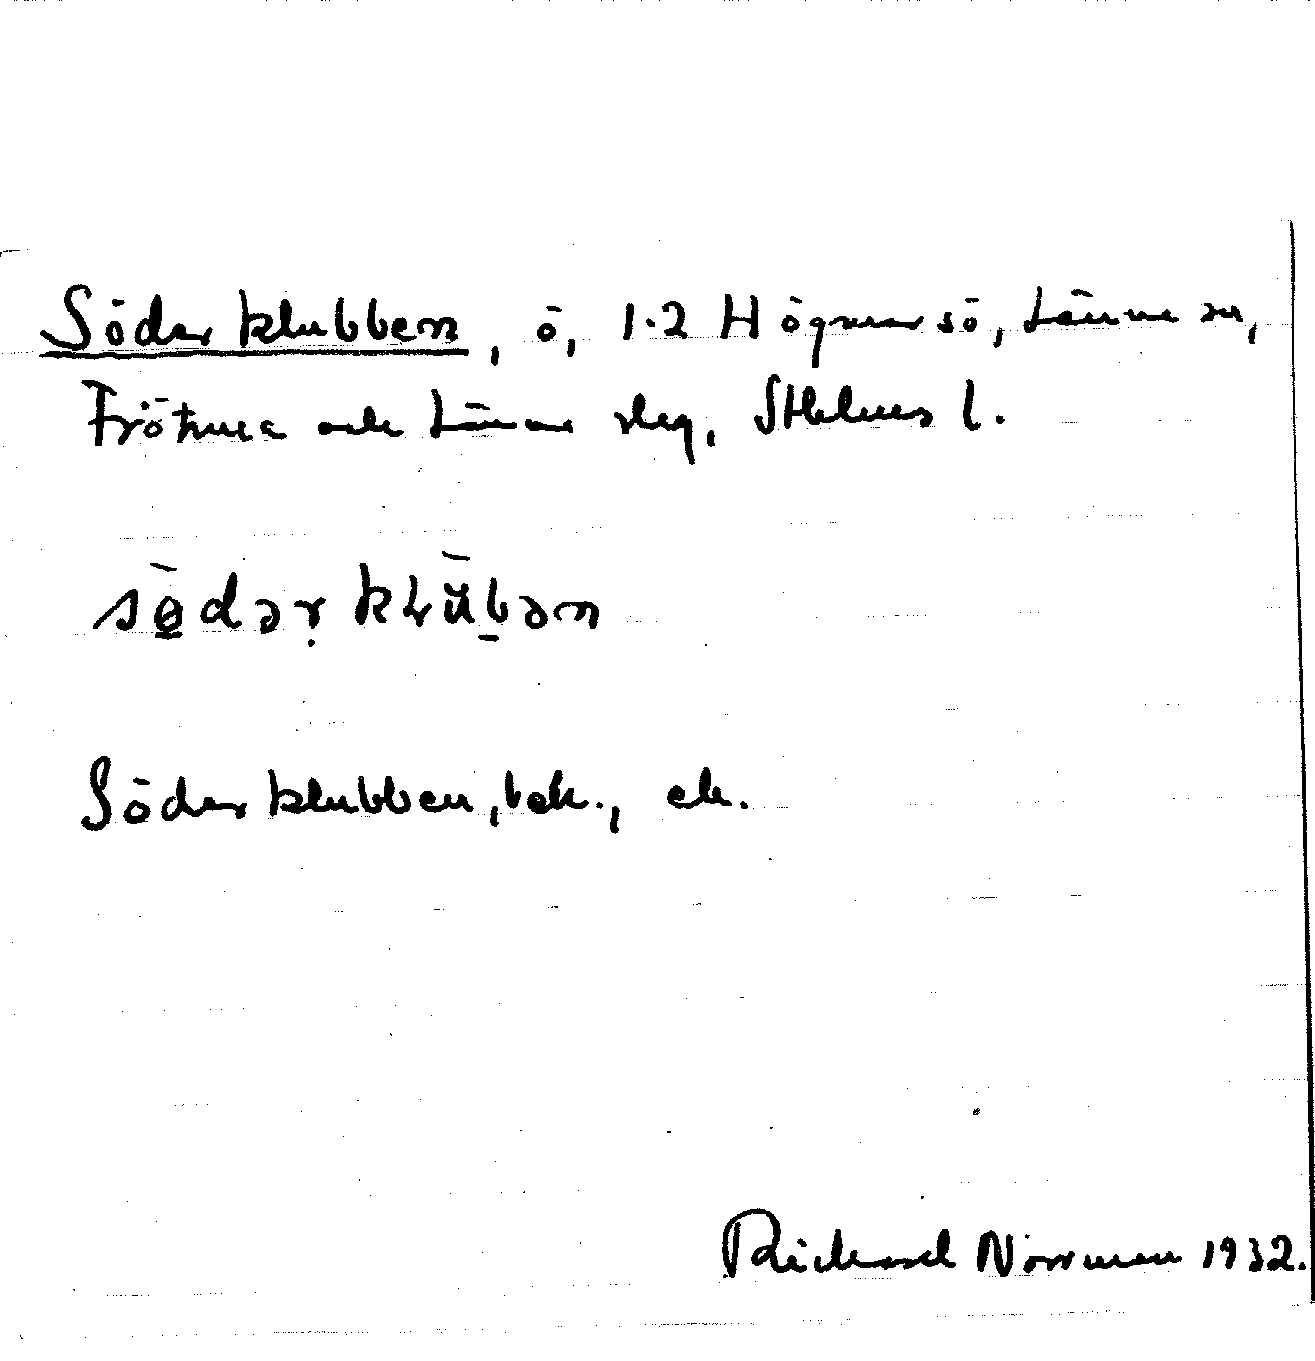 Söderklubben, ö, 1.2 Högmarsö, Länna sn,
Frötuna och Länna slag, Sthlms l.
sø̱̄dəṛkłᵾ̄b̠ən
Söderklubben, bok., ek.
Richard Norrman 1932.